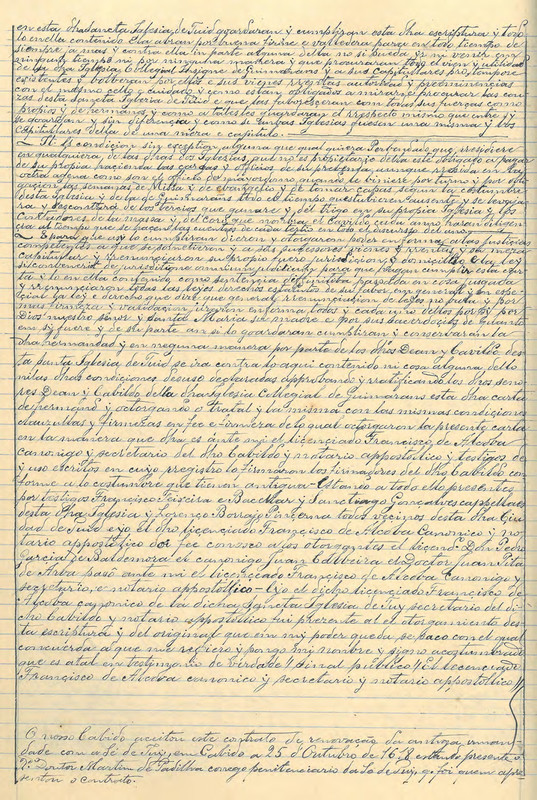 en esta dha sancta Iglesia de Tuid guardaran y cumpliran esta dha escriptura y todo
lo en ella contenido e la abran por buena firme e valledera para en todo tiempo de
siempre jamas y contra ella ni parte alguna della no si pueda yr ni venir con
ningun tiempo ni por ninguna manera y que procuraran todo el von y utilidad
de su dha Iglesia Collegial Insigne de Guimarans y a sus capitullares pro tempore
existentes y bolberan por ellos e sus vienes rrentas autoridad y preeminencias
con el mismo cello y cuidado y como estan obligados a mirar e procurar las co-
zas desta sancta Igleria de Tuid e que las faboresceran con todas sus fuerças como
propios y de hermanos, y como a tales les guardaran el rrespecto mismo que entre sy
se guardan y sin diferencia y como si entras Iglesias fuesen una misma y los
capitullares della de una mesa e capitulo. —
— It. es condicion sin exception alguna que qual quiera Prebendado que rresidiere
en qualquiera de las dhas dos Iglesias, que no es propietario della este obligado a pagar
de su propia hacienda las cargas y officios de su prebenda aunque rresida en la
otra agora como son el officio de mayordomo quando le viniere por turno y sus obli-
gacion las semanas de Missa y de evangelio y de tomar capas segun la costumbre
desta Iglesia y de la de Guimarans todo el tiempo que estubiere Pausente y se tengan
y descontaran de los tercios que ganare y del trigo en su propia Iglesia y los
Contadores de la masa y del Coro que no era el corrido cada ampo haran diligen-
cia al tiempo que se hacen las cuentas de cada tercio en todo el discurso de un ano.
y para que asi lo cumpliran dieron y otorgaron poder en forma a las justicias
competentes a que se sometieron y a sus successores vienes y rrentas y su mesa
capitular y rrenunciaron su propio fuero jurisdicion, y domicillio e la ley
sit convenerit de jurisditione omnium judicum para que hagan cumplir esta carta
y lo en ella contenido como sentencia definitiva passada en cosa juzgada
y rrenunciaron todas las leyes derechos estatutos de su fabor en general y en espe-
cial la ley e derecho que dice que general rrenunciacion de leyes no bala y por
mas firmeza y validacion juraron en forma todos y cada uno dellos por sy por
Dios nuestro senor y Santa Maria su madre e por sus sacerdocios de quanto
en sy fuere y de su parte an si lo goardaran cumpliran y conservaran la
dha hermandad y en ninguna manera por parte de los dhos Dean y Cavildo des-
ta santa Iglesia de Tuid se ira contra lo aqui contenido ni cosa alguna dello
ni las dhas condiciones desuso declaradas approbando y rratificando los dhos seno-
res Dean y Cabildo de la dha Iglesia Collegial de Guimarans esta dha carta
de hermand y octorgando o tratal y la misma con las mismas condiciones
clauzullas y firmezas en fee e firmeza de lo qual octorgaron la presente carta
en la manera que dha es ante mi el licenciado Francisco de Alcoba
canonigo y secretario del dho Cabildo y notario appostollico y testigos de
y uso escritos en cuyo registro lo firmaron los firmadores del dho Cabildo con-
forme a lo costumbre que tienen antigua - Estando a todo ello presentes
por testigos Francisco Teixeira e Baccellar y Sanctiago Gonçalves cappellaes
desta dha Iglesia y Lorenço Borrajo Pinterna todos vecinos desta dha Ciu-
dad de Tuid e yo el dho licenciado Francisco de Alcoba Canonico y no-
tario appostolico doy fee conosco a los otorgantes el licend. Don Pedro
Garcia de Baldemora el canonigo Juan Oliveira el Doctor Juan Pita
de Arba paso ante mi el Licenciado Francisco de Alcoba Canonigo y
secretario, e notario appostollico — E yo el dicho licenciado Francisco de
Alcoba canonico de la dicha Sancta Iglesia de Tuy secretario del di-
cho Cabildo y notario appostollico fui presente al el otorgamiento des-
ta escriptura y del original que em mi poder queda se saco con el qual
concuerda a que me refiero y pongo mi nombre y signo acostumbrado
que es atal en testimonio de verdade // Sinal público // El licenciado
Francisco de Alcoba canonico y secretario y notario appostollico //
O nosso Cabido aceitou este contrato da renovação da antiga irman-
dade com a Sé de Tuy, em Cabido a 25 d'Outubro de 1618 estando presente o
Dr. Doutor Martim de Padilha conego penitenciario da Sé de Tuy, q. foi quem apre-
sentou o contrato.